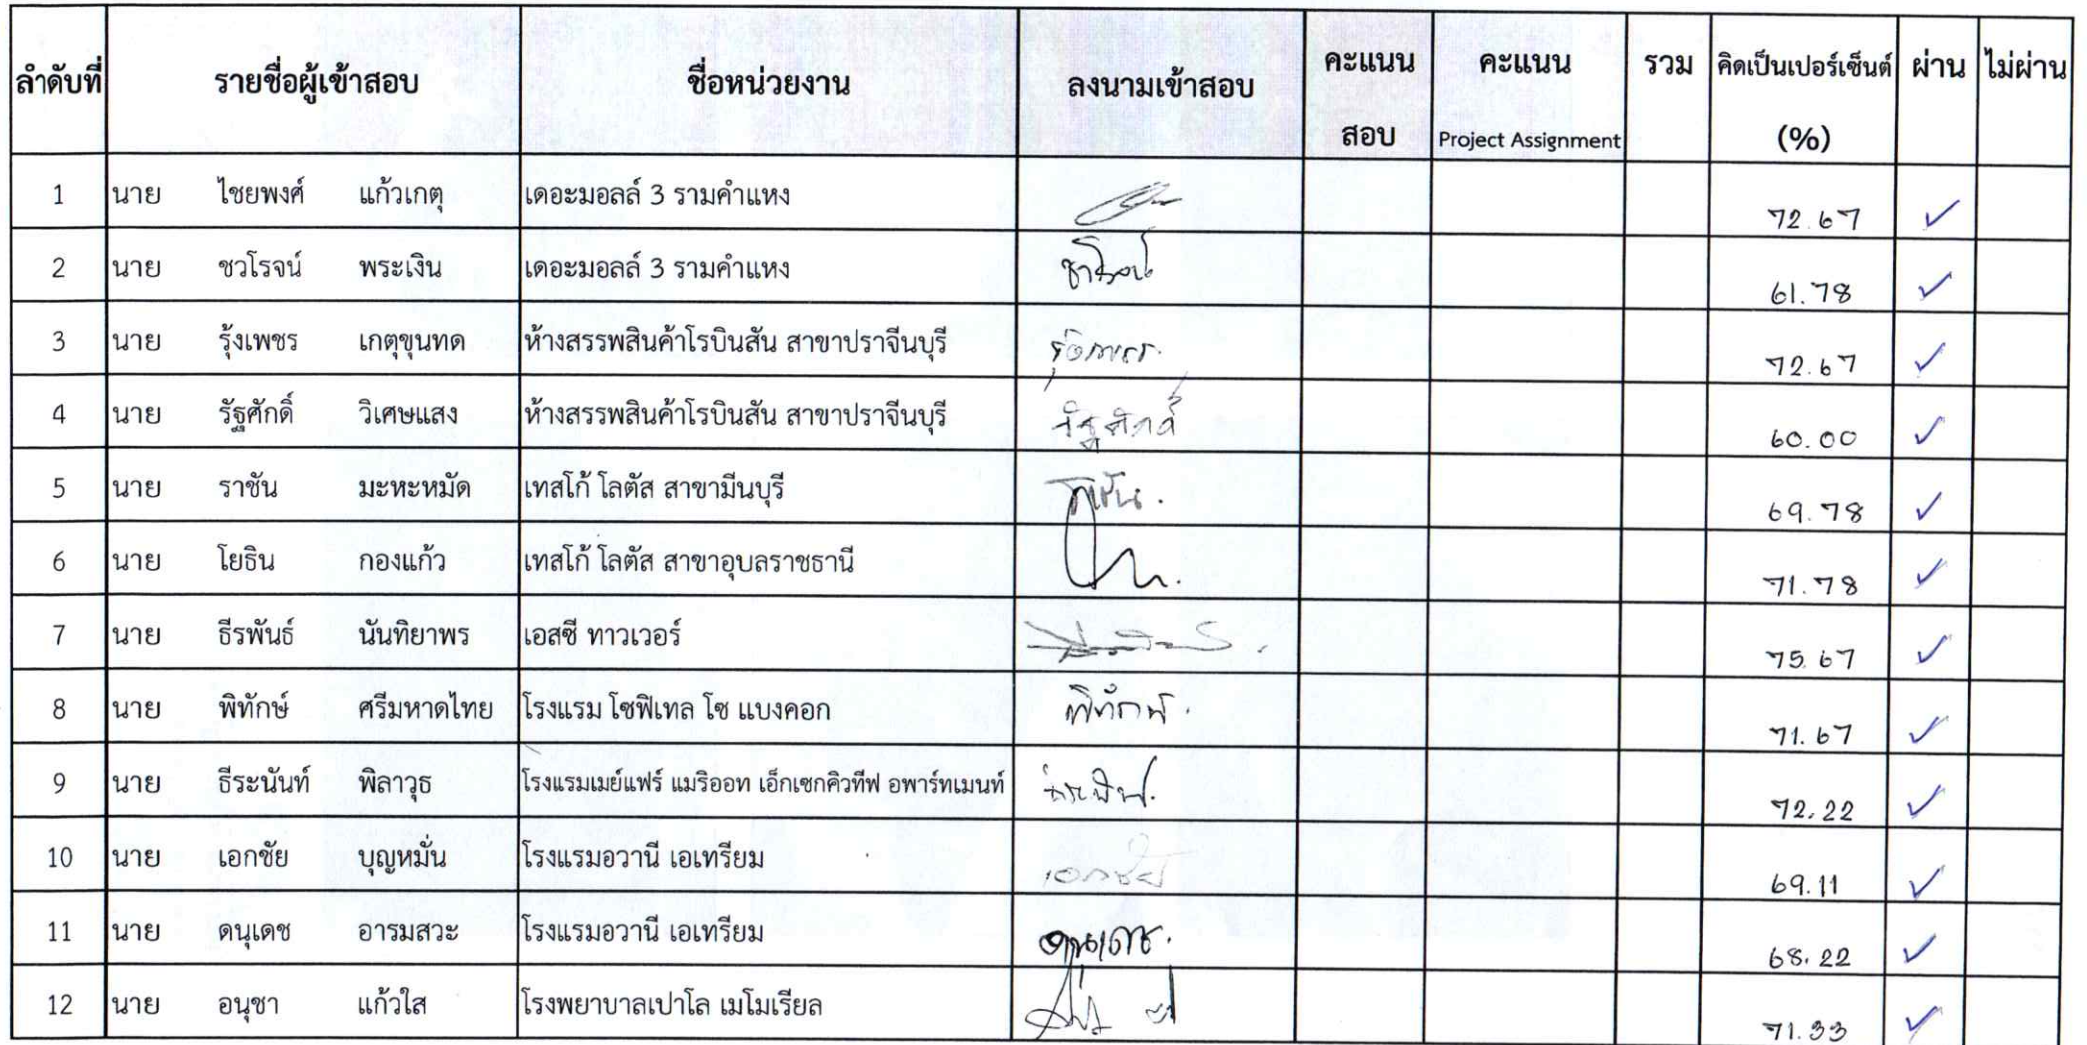 ลำดับที่ รายชื่อผู้เข้าสอบ ชื่อหน่วยงาน ลงนามเข้าสอบ คะแนนสอบ คะแนน Project Assignment รวม คิดเป็นเปอร์เซ็นต์ (%) ผ่าน ไม่ผ่าน
1 นาย ไชยพงศ์ แก้วเกตุ เดอะมอลล์ 3 รามคำแหง 72.67 ✓
2 นาย ชวโรจน์ พระเงิน เดอะมอลล์ 3 รามคำแหง 61.78 ✓
3 นาย รุ้งเพชร เกตุขุนทด ห้างสรรพสินค้าโรบินสัน สาขาปราจีนบุรี 72.67 ✓
4 นาย รัฐศักดิ์ วิเศษแสง ห้างสรรพสินค้าโรบินสัน สาขาปราจีนบุรี รัฐศักดิ์ 60.00 ✓
5 นาย ราชัน มะหะหมัด เทสโก้ โลตัส สาขามีนบุรี ราชัน. 69.78 ✓
6 นาย โยธิน กองแก้ว เทสโก้ โลตัส สาขาอุบลราชธานี 71.78 ✓
7 นาย ธีรพันธ์ นันทิยาพร เอสซี ทาวเวอร์ 75.67 ✓
8 นาย พิทักษ์ ศรีมหาดไทย โรงแรม โซฟิเทล โซ แบงคอก พิทักษ์. 71.67 ✓
9 นาย ธีระนันท์ พิลาวุธ โรงแรมเมย์แฟร์ แมริออท เอ็กเซกคิวทีฟ อพาร์ทเมนท์ 72.22 ✓
10 นาย เอกชัย บุญหมั่น โรงแรมอวานี เอเทรียม เอกชัย 69.11 ✓
11 นาย ดนุเดช อารมสวะ โรงแรมอวานี เอเทรียม ดนุเดช. 68.22 ✓
12 นาย อนุชา แก้วใส โรงพยาบาลเปาโล เมโมเรียล 71.33 ✓